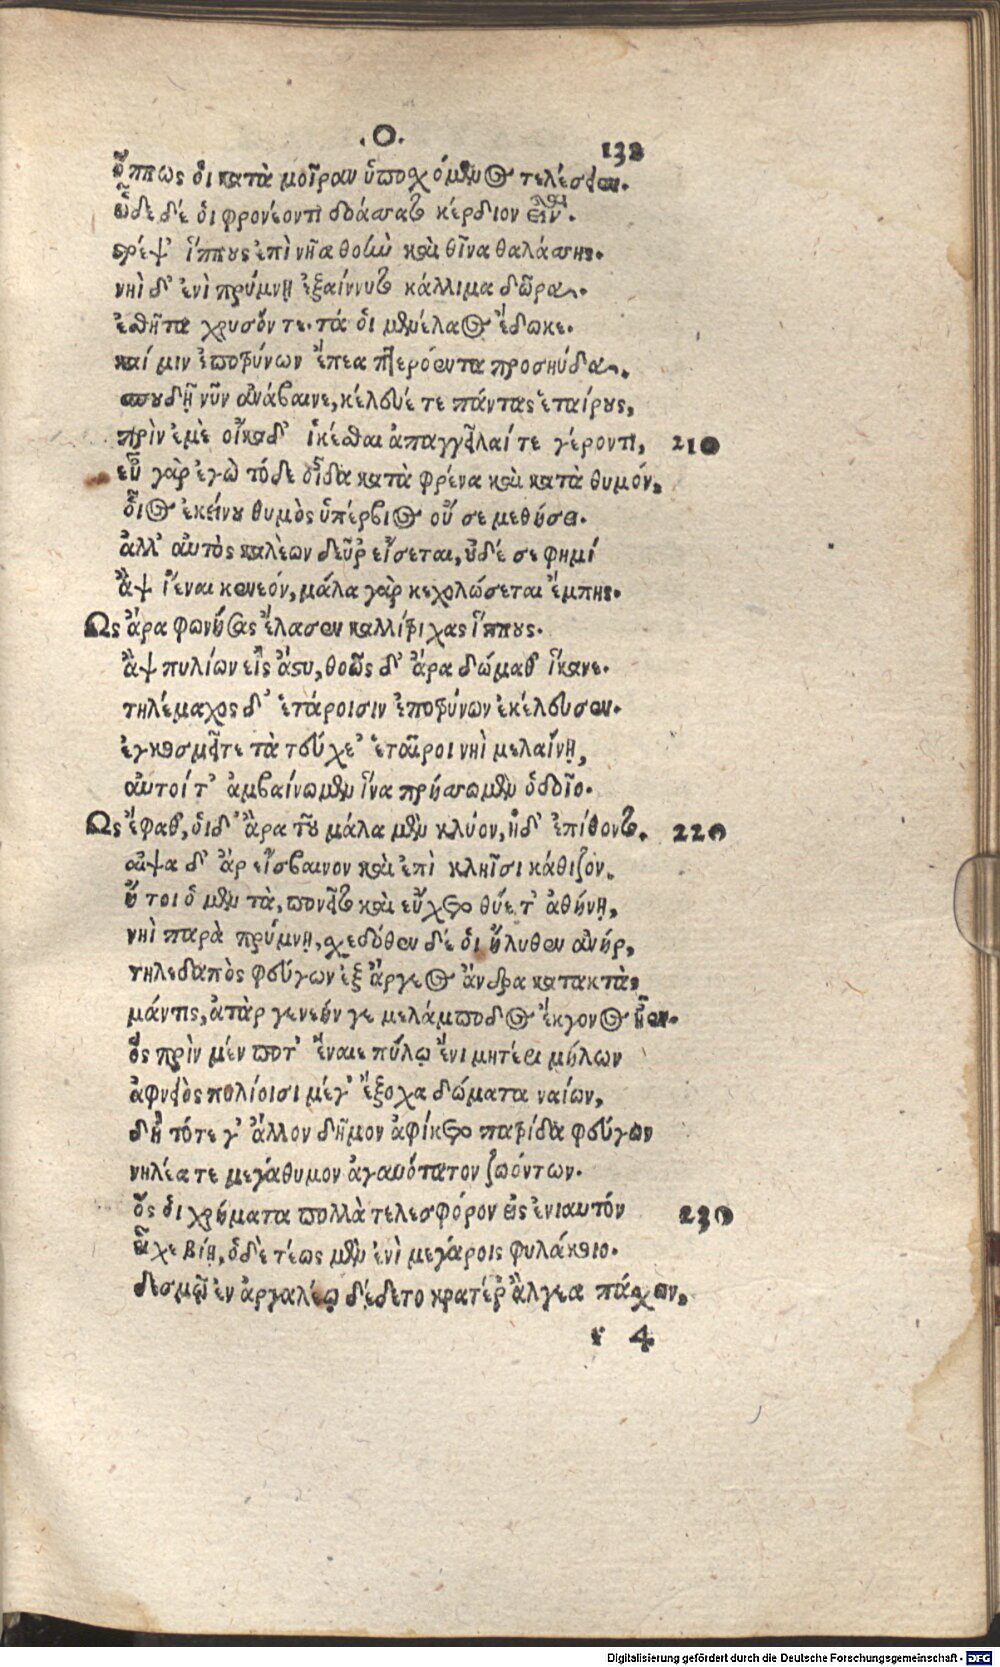 .Ο.
132
ὅππως οἱ κατὰ μοῖραν ὑποσχόμενος τελέσειεν.
ὧδε δέ οἱ φρονέοντι δοάσσατο κέρδιον εἶναι.
στρέψ' ἵππους ἐπὶ νῆα θοὴν καὶ θῖνα θαλάσσης.
νηὶ δ' ἐνὶ πρύμνῃ ἐξαίνυτο κάλλιμα δῶρα.
ἐσθῆτα χρυσόν τε. τά οἱ μενέλαος ἔδωκε.
καί μιν ἐποτρύνων ἔπεα πτερόεντα προσηύδα.
σπουδῇ νῦν ἀνάβαινε, κέλευέ τε πάντας ἑταίρους,
πρὶν ἐμὲ οἴκαδ' ἱκέσθαι ἀπαγγεῖλαί τε γέροντι, 210
εὖ γὰρ ἐγὼ τόδε οἶδα κατὰ φρένα καὶ κατὰ θυμόν,
οἷος ἐκείνου θυμὸς ὑπέρβιος οὔ σε μεθήσει.
ἀλλ' αὐτὸς καλέων δεῦρ' εἴσεται, οὐδέ σε φημί
ἂψ ἰέναι κενεόν, μάλα γὰρ κεχολώσεται ἔμπης.
Ως ἄρα φωνήσας ἔλασεν καλλίτριχας ἵππους.
ἂψ πυλίων εἰς ἄστυ, θοῶς δ' ἄρα δώμαθ' ἵκανε.
τηλέμαχος δ' ἑτάροισιν ἐποτρύνων ἐκέλευσεν.
ἐγκοσμεῖτε τὰ τεύχε' ἑταῖροι νηὶ μελαίνῃ,
αὐτοί τ' ἀμβαίνωμεν ἵνα πρήσσωμεν ὁδοῖο.
Ως ἔφαθ', οἱ δ' ἄρα τοῦ μάλα μὲν κλύον, ἠδ' ἐπίθοντο. 220
αἶψα δ' ἄρ εἴσβαινον καὶ ἐπὶ κληῗσι κάθιζον.
ἤ τοι ὁ μὲν τὰ πονεῖτο καὶ εὔχετο θῦε τ' ἀθήνῃ,
νηὶ παρὰ πρύμνῃ, σχεδόθεν δέ οἱ ἤλυθεν ἀνήρ,
τηλεδαπὸς φεύγων ἐξ ἄργεος ἄνδρα κατακτὰς
μάντις, ἀτὰρ γενεήν γε μελάμποδος ἔκγονος ἦεν.
ὃς πρὶν μέν ποτ' ἔναιε πύλῳ ἔνι μητέρι μήλων
ἀφνειὸς πυλίοισι μέγ' ἔξοχα δώματα ναίων,
δὴ τότε γ' ἄλλον δῆμον ἀφίκετο πατρίδα φεύγων
νηλέα τε μεγάθυμον ἀγαυότατον ζωόντων.
ὅς οἱ χρήματα πολλὰ τελεσφόρον εἰς ἐνιαυτόν 230
εἶχε βίῃ, ὁ δὲ τέως μὲν ἐνὶ μεγάροις φυλάκοιο.
δεσμῷ ἐν ἀργαλέῳ δέδετο κρατέρ' ἄλγεα πάσχων,
r 4
Digitalisierung gefördert durch die Deutsche Forschungsgemeinschaft - DFG